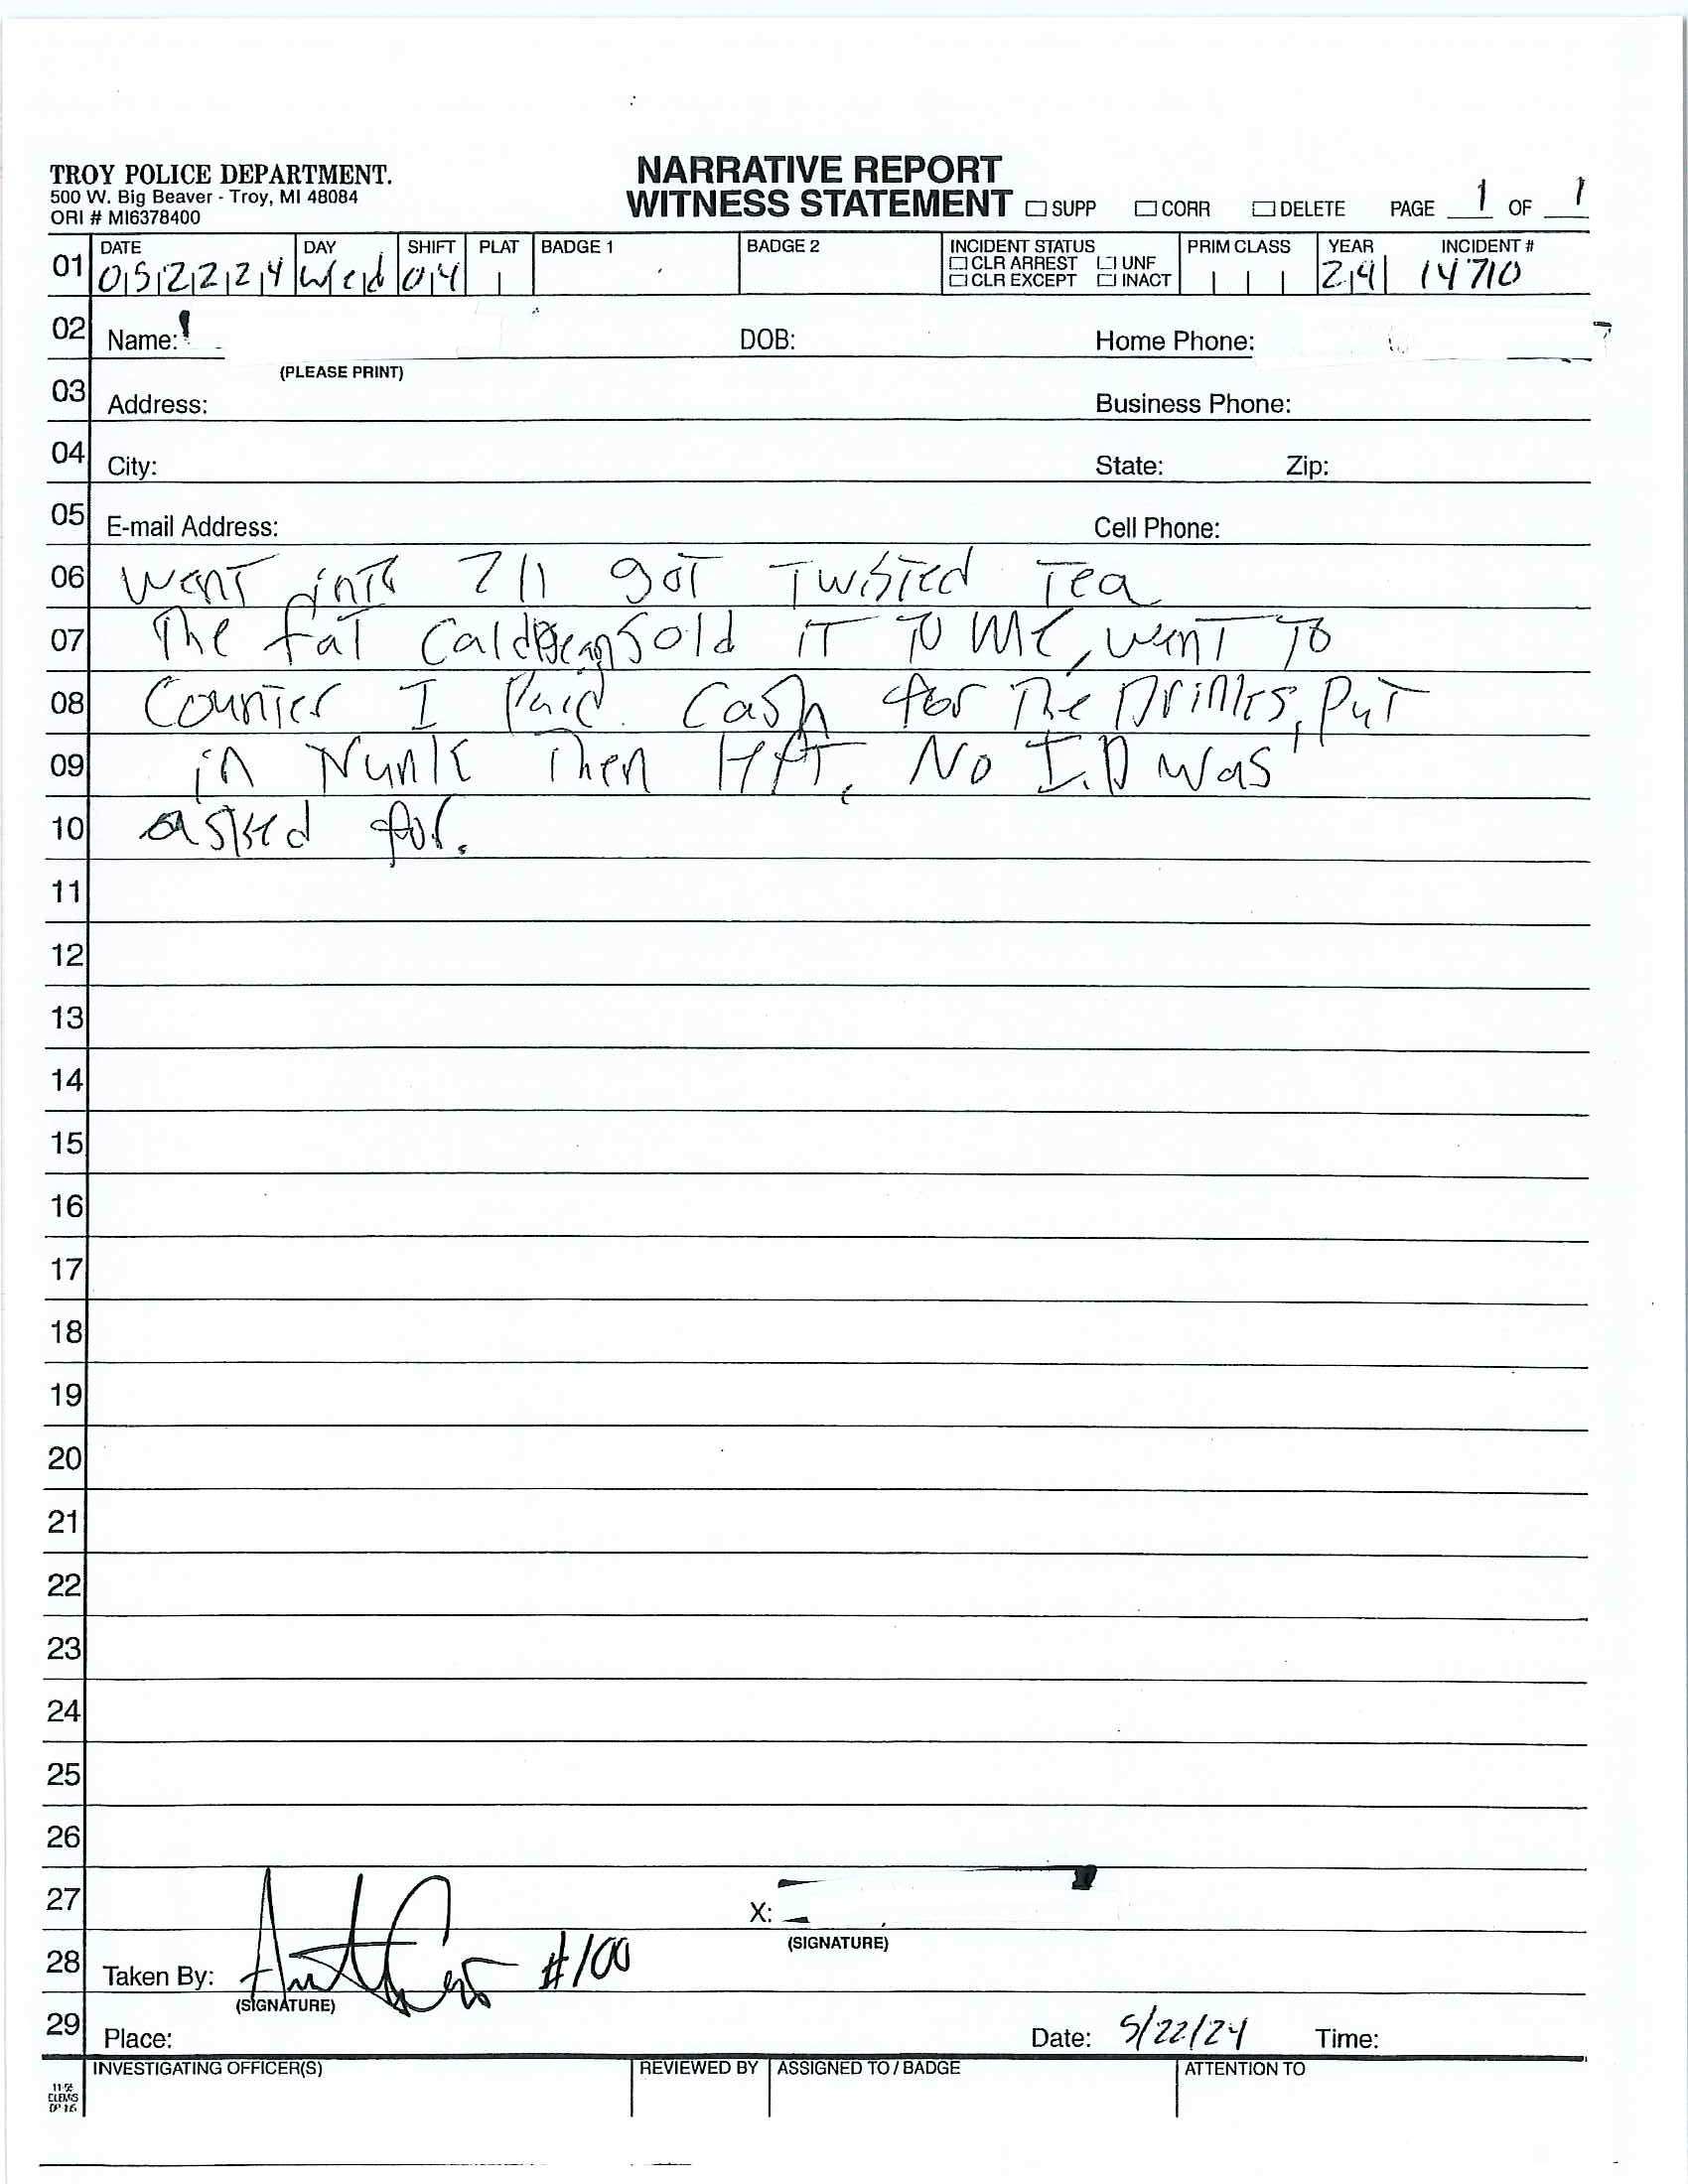 TROY POLICE DEPARTMENT.
500 W. Big Beaver - Troy, MI 48084
ORI # MI6378400
NARRATIVE REPORT
WITNESS STATEMENT SUPP CORR DELETE PAGE 1 OF 1
01 DATE DAY SHIFT PLAT BADGE 1 BADGE 2 INCIDENT STATUS PRIM CLASS YEAR INCIDENT #
CLR ARREST UNF
CLR EXCEPT INACT
052224 Wed 04 24 14710
02 Name: DOB: Home Phone:
(PLEASE PRINT)
03 Address: Business Phone:
04 City: State: Zip:
05 E-mail Address: Cell Phone:
06 Went into 711 got Twisted Tea
07 The fat sold it to Me, went to
08 Counter I Paid. Cash for The Drinks, Put
09 in Then left, No I.D was
10 asked for.
11
12
13
14
15
16
17
18
19
20
21
22
23
24
25
26
27 X:
(SIGNATURE)
28 Taken By: #100
(SIGNATURE)
29 Place: Date: 5/22/24 Time:
INVESTIGATING OFFICER(S) REVIEWED BY ASSIGNED TO / BADGE ATTENTION TO